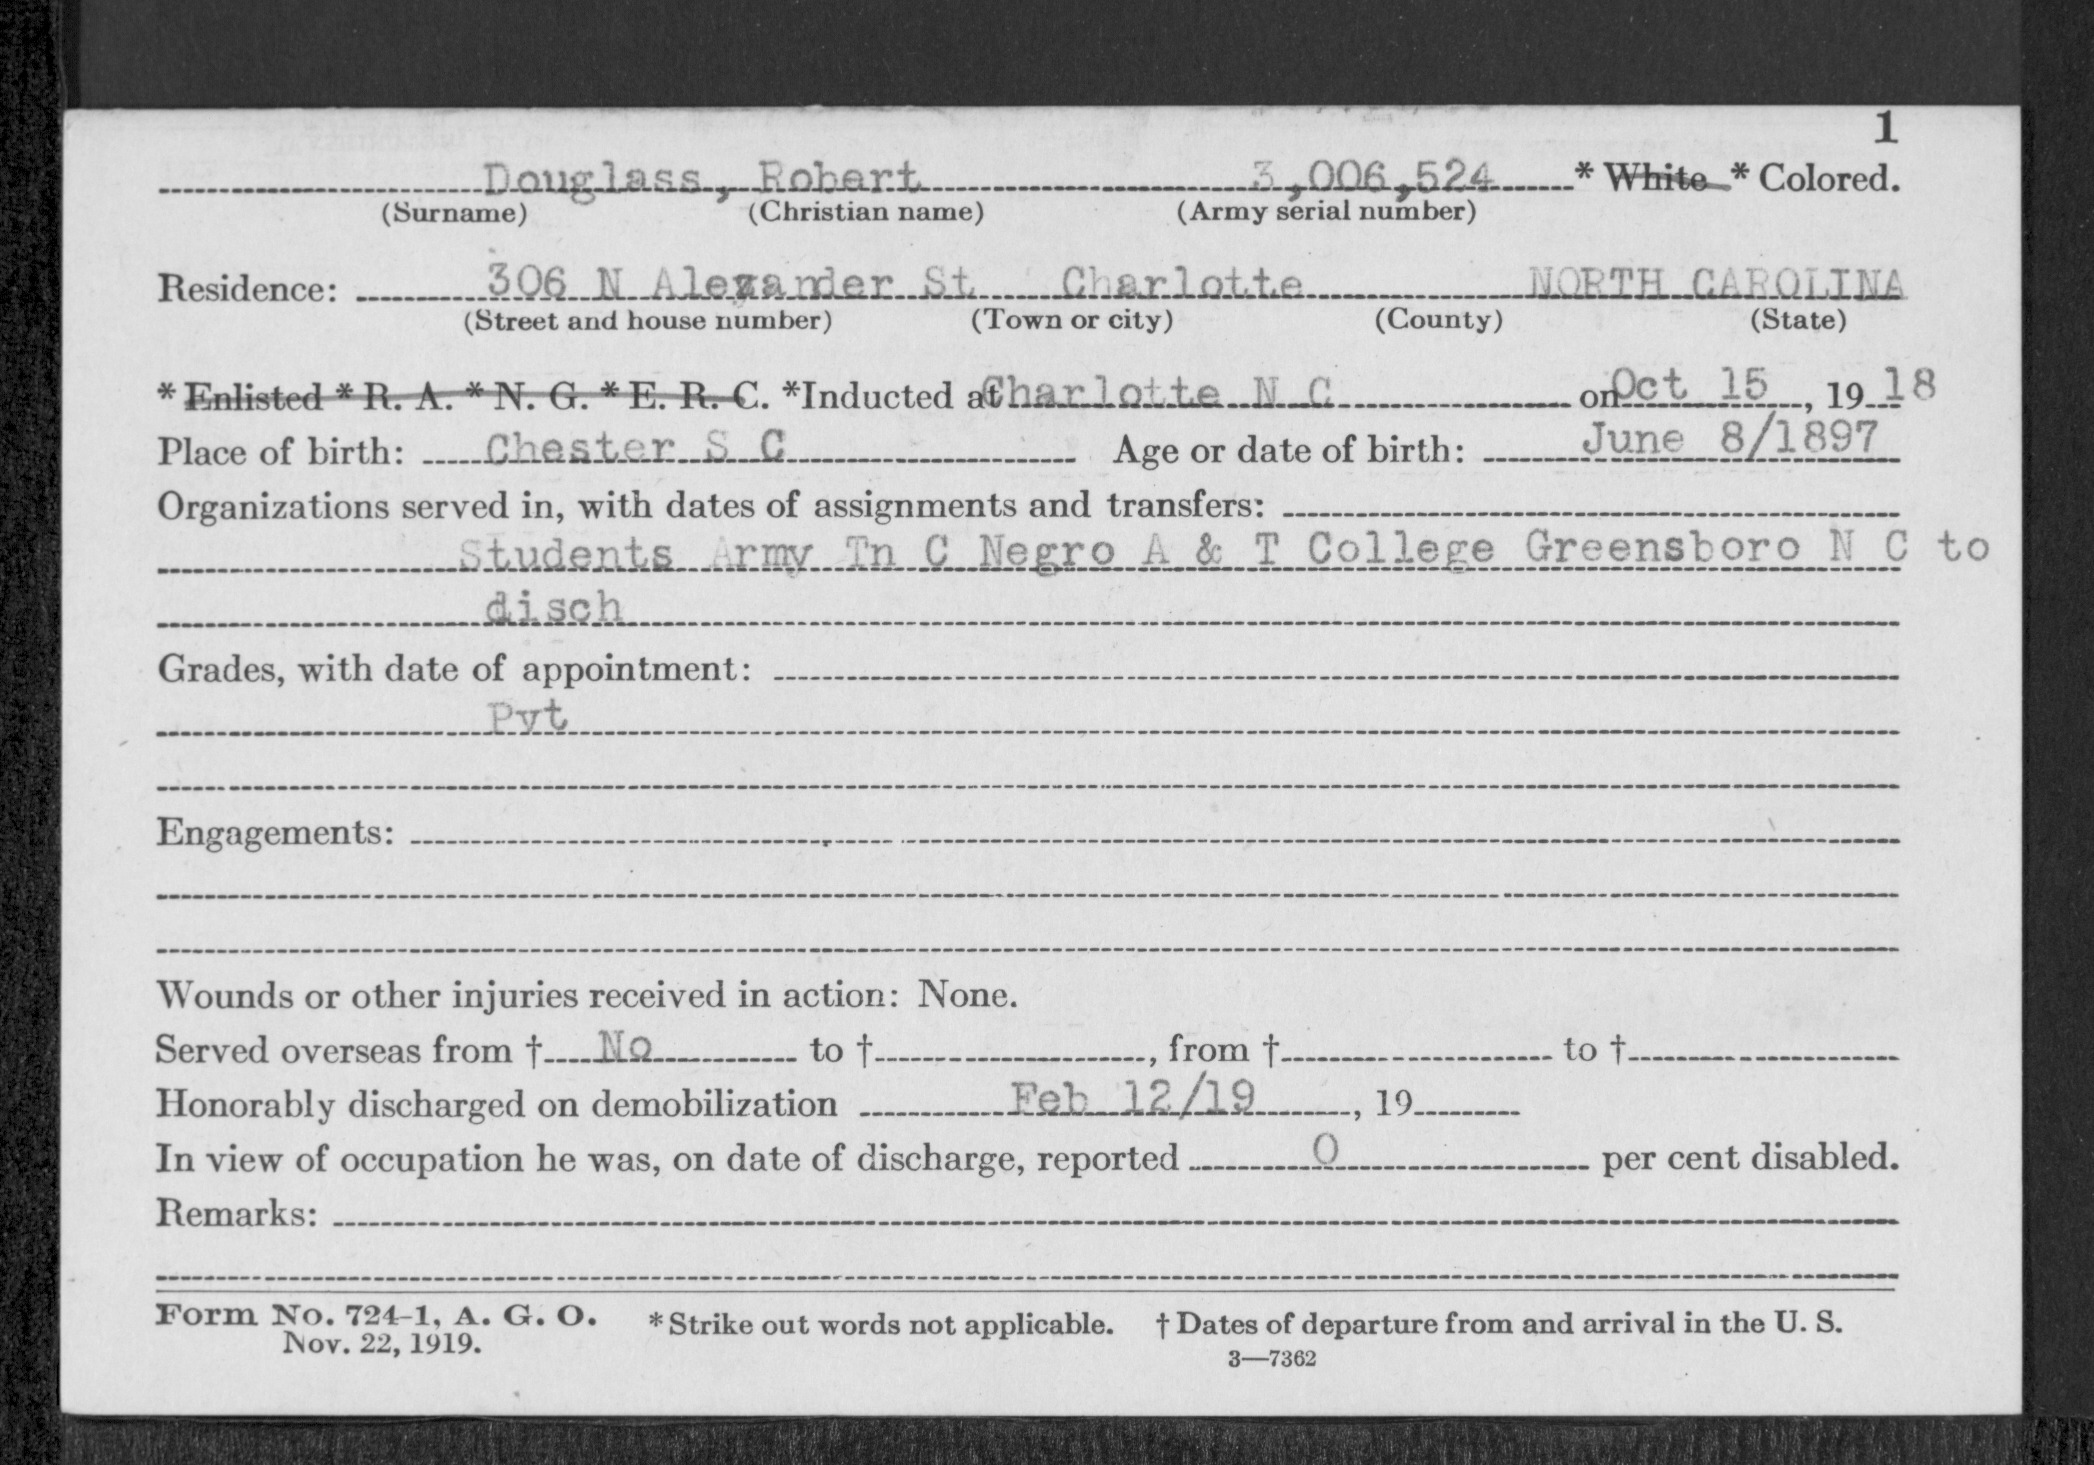 1
Douglass, Robert 3,006,524 * White * Colored.
(Surname) (Christian name) (Army serial number)
Residence: 306 N Alexander St Charlotte NORTH CAROLINA
(Street and house number) (Town or city) (County) (State)
* Enlisted * R. A. * N. G. * E. R. C. *Inducted at Charlotte N C on Oct 15, 1918
Place of birth: Chester S C Age or date of birth: June 8/1897
Organizations served in, with dates of assignments and transfers:
Students Army Tn C Negro A & T College Greensboro N C to
disch
Grades, with date of appointment:
Pvt
Engagements:
Wounds or other injuries received in action: None.
Served overseas from † No to †, from † to †
Honorably discharged on demobilization Feb 12/19, 19
In view of occupation he was, on date of discharge, reported 0 per cent disabled.
Remarks:
Form No. 724-1, A. G. O. * Strike out words not applicable. † Dates of departure from and arrival in the U. S.
Nov. 22, 1919.
3—7362